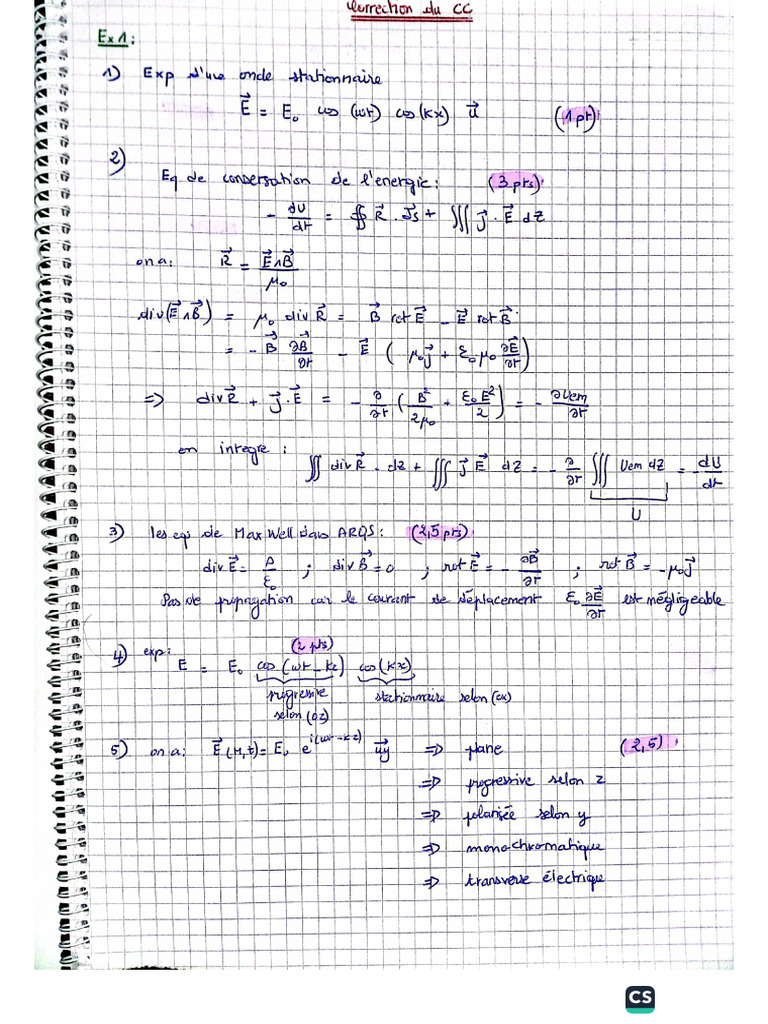 Correction du CC
Ex1:
1) Exp d'une onde stationnaire
E⃗ = E₀ cos (ωt) cos(Kx) u⃗ (1pt)
2)
Eq de conservation de l'energie: (3 pts)
- dU/dt = ∯ R⃗ . ds⃗ + ∭ j⃗ . E⃗ dZ
on a: R⃗ = E⃗∧B⃗ / μ₀
div(E⃗∧B⃗) = μ₀ div R⃗ = B⃗ rot E⃗ - E⃗ rot B⃗
= - B⃗ ∂B⃗/∂t - E⃗ ( μ₀j⃗ + ε₀μ₀ ∂E⃗/∂t )
=> div R⃗ + j⃗ . E⃗ = - ∂/∂t ( B²/2μ₀ + ε₀E²/2 ) = - ∂Uem/∂t
on integre : ∭ div R⃗ . dZ + ∭ j⃗ E⃗ dZ = - ∂/∂t ∭ Uem dZ = - dU/dt
U
3) les eqs de MaxWell dans ARQS: (2,5 pts)
div E⃗ = ρ/ε₀ ; div B⃗ = 0 ; rot E⃗ = - ∂B⃗/∂t ; rot B⃗ = - μ₀j⃗
Pas de propagation car le courant de déplacement ε₀ ∂E⃗/∂t est négligeable
(2 pts)
4) exp: E = E₀ cos (ωt - kz) cos(Kx)
progressive stationnaire selon (ox)
selon (oz)
5) on a: E⃗(M,t) = E₀ e^i(ωt-kz) u⃗y => plane (2,5)
=> progressive selon z
=> polarisée selon y
=> monochromatique
=> transverse électrique
CS